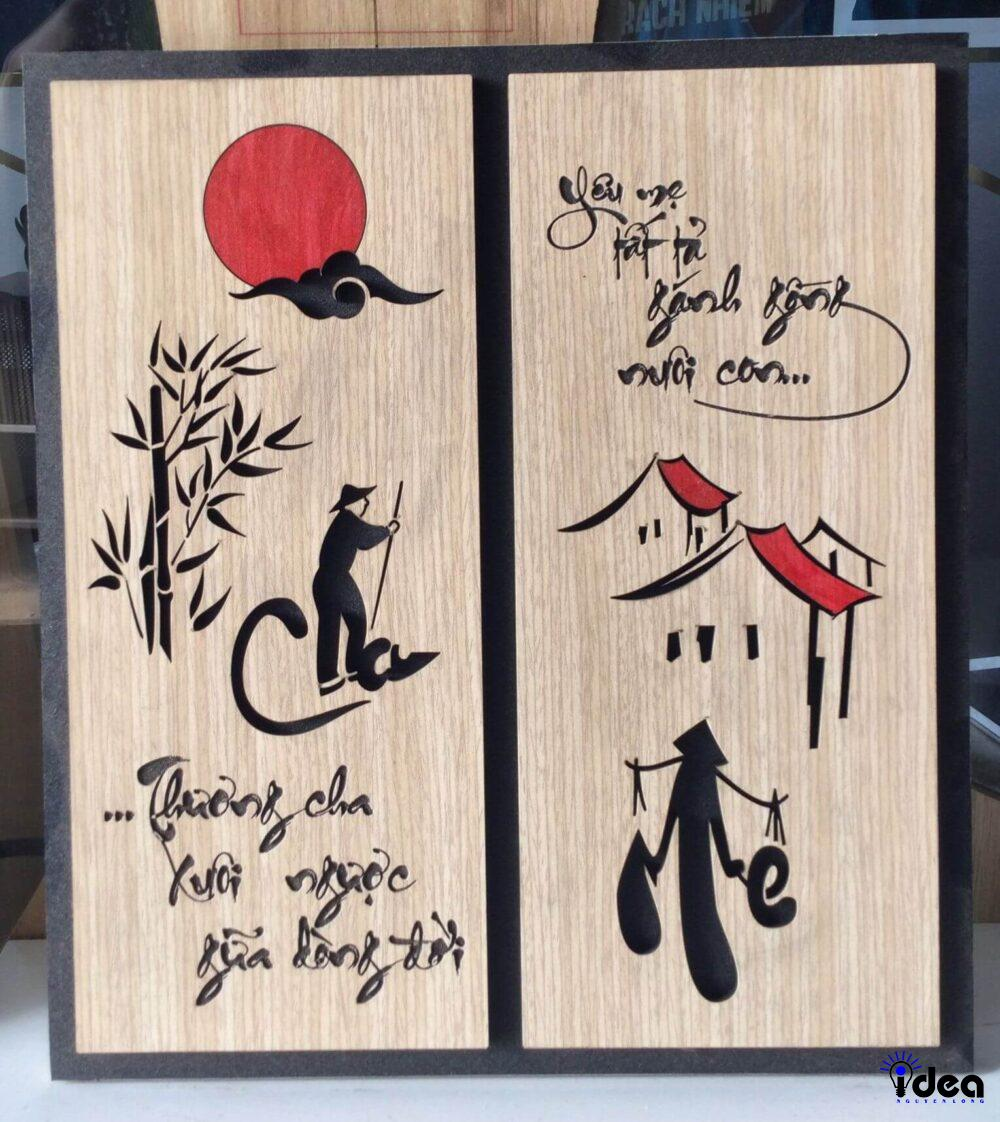 RÁCH NHIỆM
Cha
...Thương cha
xuôi ngược
giữa dòng đời
yêu mẹ
tất tả
gánh gồng
nuôi con...
Mẹ
idea
NGUYENLONG